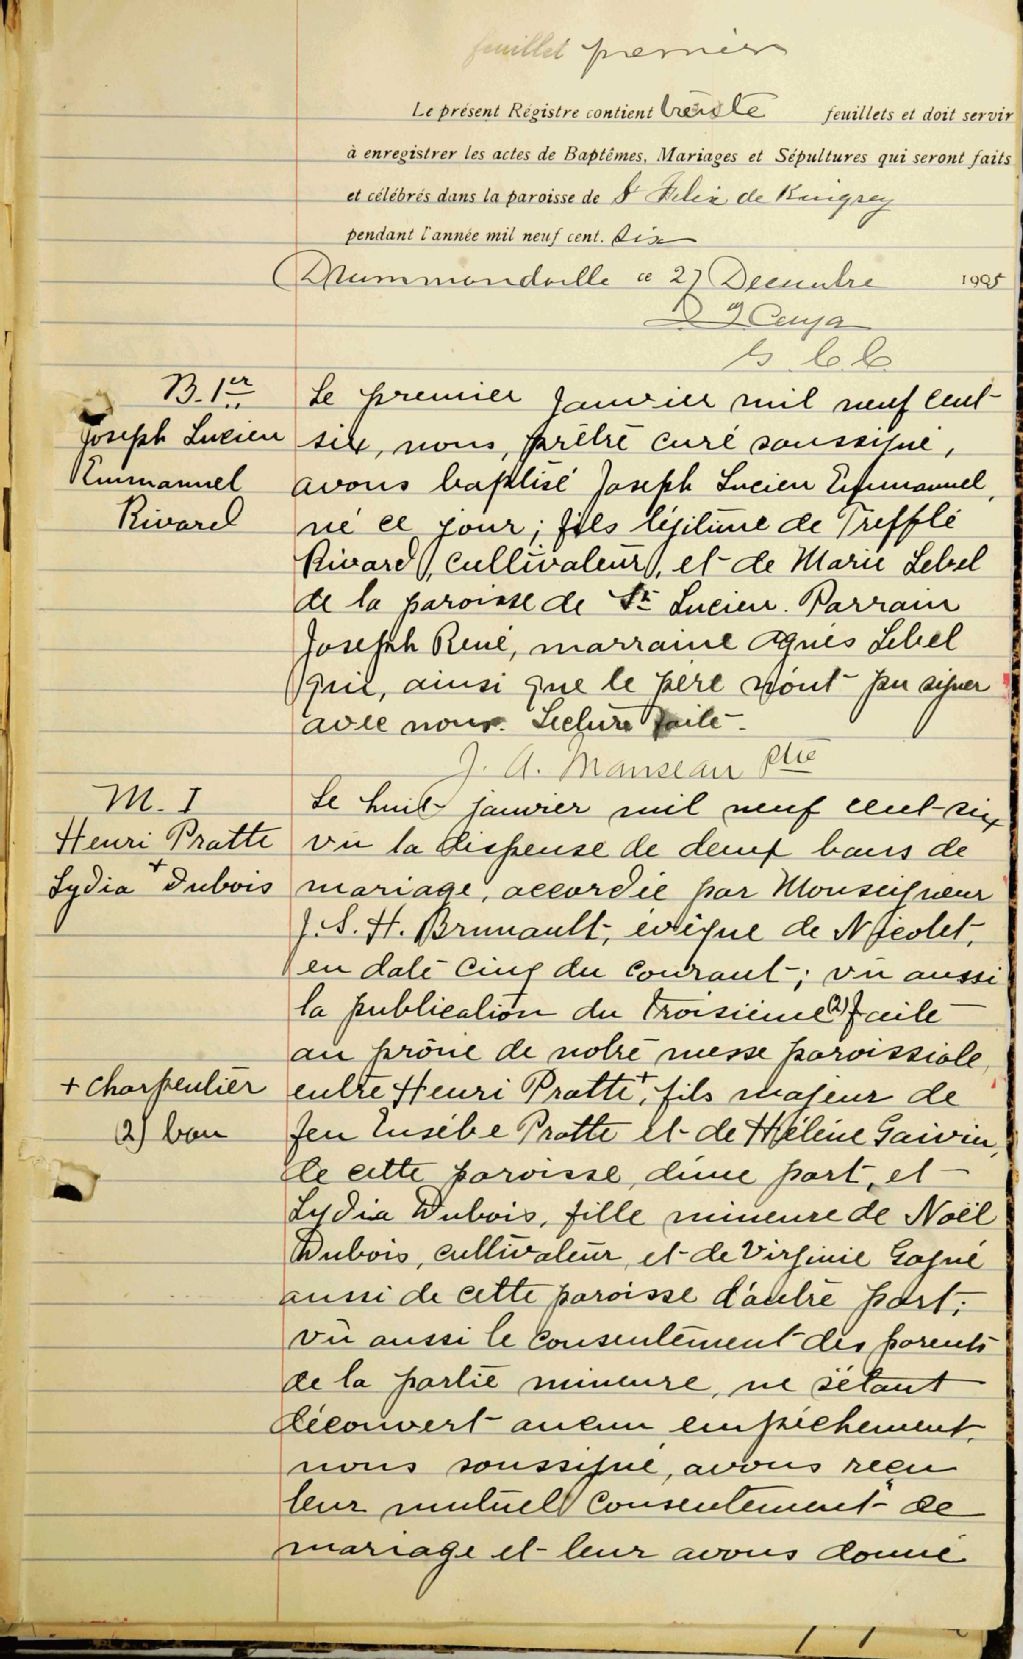 feuillet premier
Le présent Régistre contient trente feuillets et doit servir
à enregistrer les actes de Baptêmes, Mariages et Sépultures qui seront faits
et célébrés dans la paroisse de St Felix de Kingsey
pendant l'année mil neuf cent. six
Drummondville ce 27 Decembre 1905
G. C. C.
B. 1er
Joseph Lucien
Emmanuel
Rivard
Le premier Janvier mil neuf cent
six, nous, prêtre curé soussigné,
avons baptisé Joseph Lucien Emmanuel,
né ce jour; fils légitime de Trefflé
Rivard, cultivateur, et de Marie Lebel
de la paroisse de St Lucien. Parrain
Joseph René, marraine Agnès Lebel
qui, ainsi que le père n'ont pu signer
avec nous. Lecture faite.
J. A. Manseau Ptre
M. I
Henri Pratte
+
Lydia Dubois
+ charpentier
(2) ban
Le huit janvier mil neuf cent six
vu la dispense de deux bans de
mariage, accordée par Monseigneur
J. S. H. Brunault, évêque de Nicolet,
en date cinq du courant; vu aussi
la publication du troisième (2) faite
au prône de notre messe paroissiale,
entre Henri Pratte +, fils majeur de
feu Eusèbe Pratte et de Hélène Gaivin,
de cette paroisse, d'une part, et
Lydia Dubois, fille mineure de Noël
Dubois, cultivateur, et de Virginie Gagné
aussi de cette paroisse d'autre part;
vu aussi le consentement des parents
de la partie mineure, ne s'étant
découvert aucun empêchement,
nous soussigné, avons reçu
leur mutuel consentement de
mariage et leur avons donné